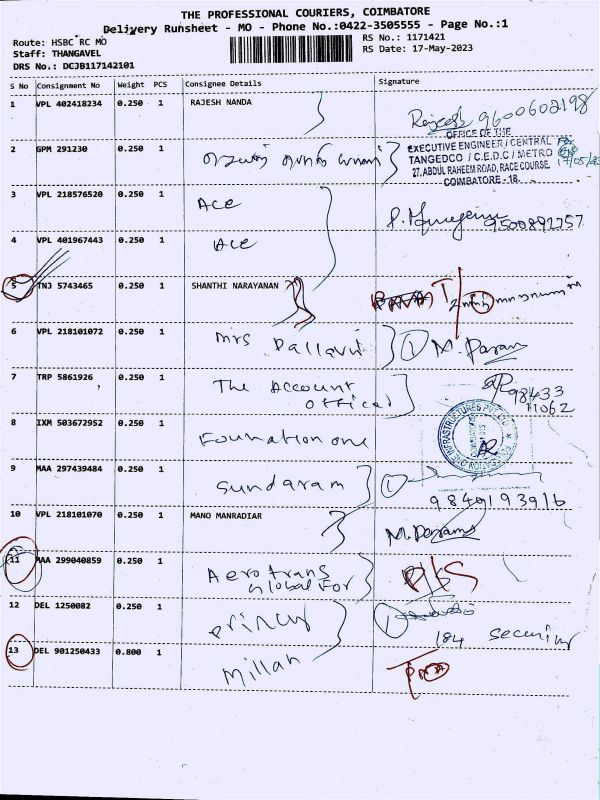 THE PROFESSIONAL COURIERS, COIMBATORE
Delivery Runsheet - MO - Phone No.:0422-3505555 - Page No.:1
Route: HSBC RC MO
RS No.: 1171421
Staff: THANGAVEL
RS Date: 17-May-2023
DRS No.: DCJB117142101
S No Consignment No Weight PCS Consignee Details Signature
1 VPL 402418234 0.250 1 RAJESH NANDA
Rajesh 9600602198
2 GPM 291230 0.250 1
OFFICE OF THE
EXECUTIVE ENGINEER / CENTRAL
TANGEDCO / C.E.D.C / METRO
27, ABDUL RAHEEM ROAD, RACE COURSE,
COIMBATORE - 18.
3 VPL 218576520 0.250 1 Ace
4 VPL 401967443 0.250 1 Ace
9500892757
5 TNJ 5743465 0.250 1 SHANTHI NARAYANAN
6 VPL 218101072 0.250 1 Mrs Pallavi 1 M. Param
7 TRP 5861926 0.250 1 The Account Officer
98433
11062
8 IXM 503672952 0.250 1 Foundation one
9 MAA 297439484 0.250 1 Sundaram 1
9849193916
10 VPL 218101070 0.250 1 MANO MANRADIAR M. Param
11 MAA 299040859 0.250 1 Aero trans
Global For
12 DEL 1250082 0.250 1 1
184 Security
13 DEL 901250433 0.800 1 Millan